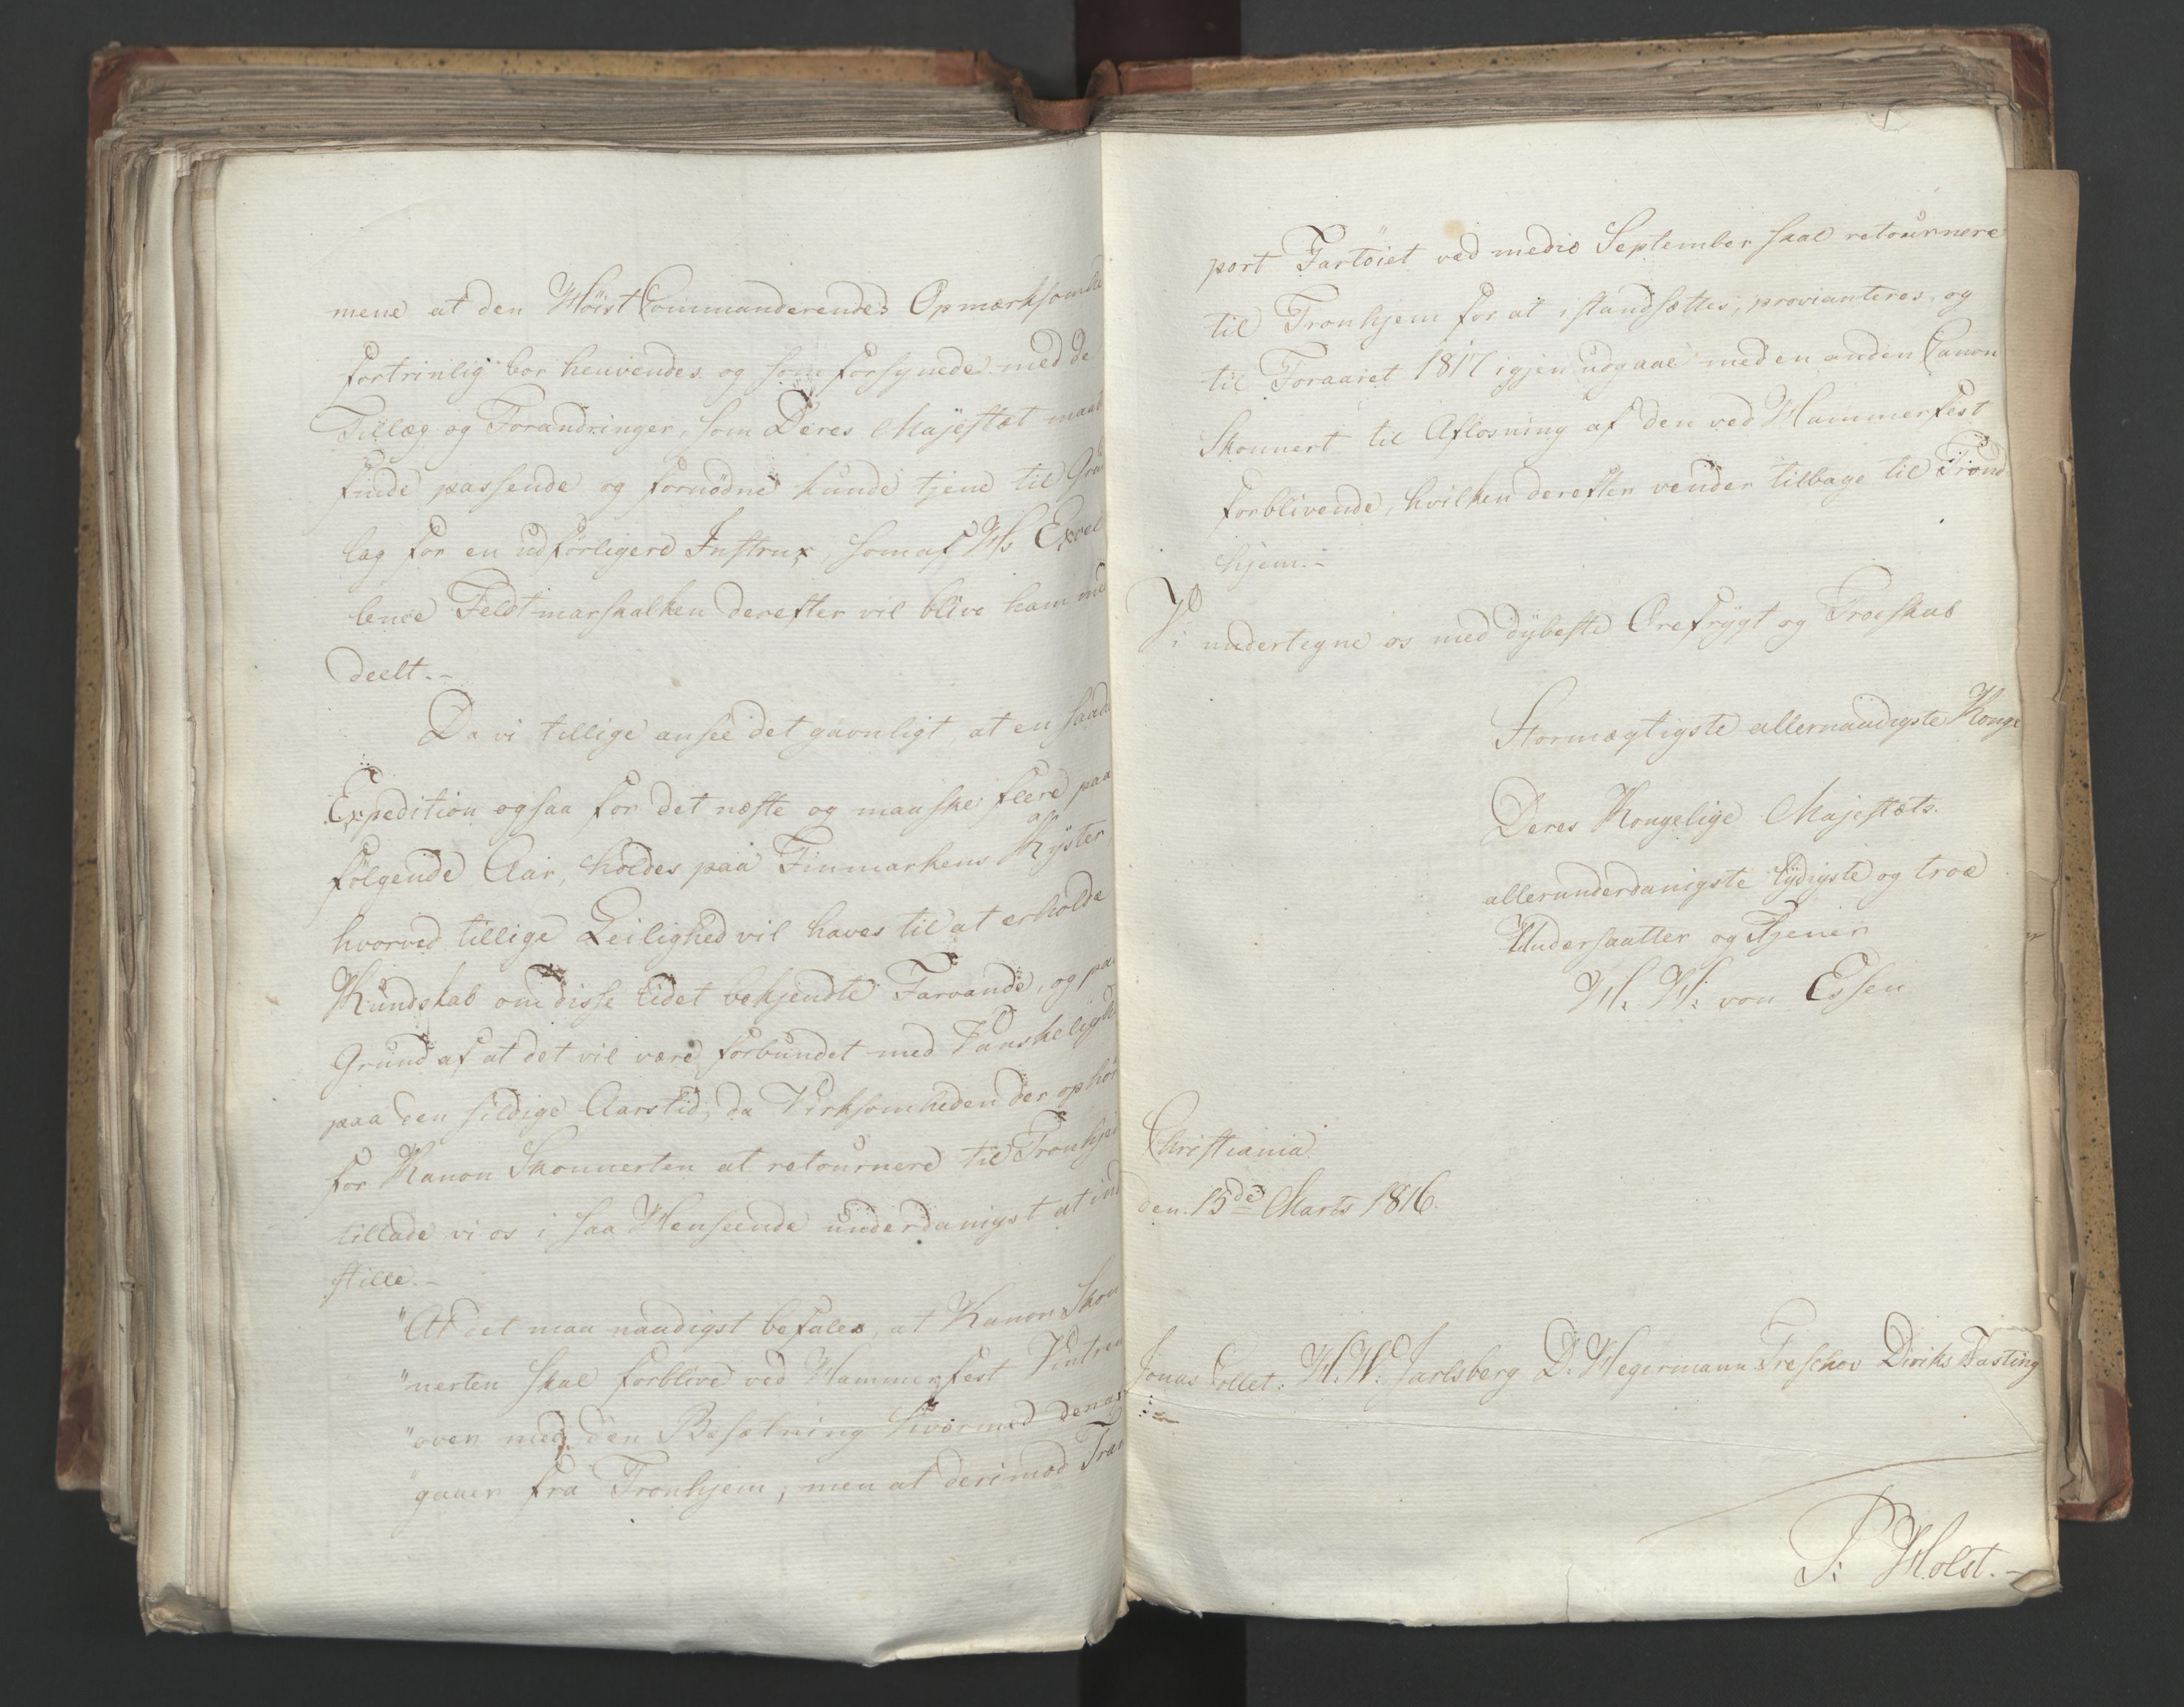 mene at den Höist Commanderendes Opmærksomhe
fortrinlig bör henvendes og som forsynede med de
Tillæg og Forandringer, som Deres Majestæt maat
finde passende og fornödne kunde tjene til Grund
lag for en udförligere Instrux, som af Hs Excel
lence Feldtmarskalken derefter vil blive ham med
deelt.-
Da vi tillige ansee det gavnligt, at en saada
Expedition ogsaa for det næste og maaske flere paa
fölgende Aar, holdes paa Finmarkens Kyster,
hvorved tillige Leilighed vil haves til at erholde
Kundskab om disse lidet bekjendte Farvande, og paa
Grund af at det vil være forbundet med Vanskelighe
paa den sildige Aarstid, da Virksomheden der ophör
for Kanon Skonnerten at retournere til Tronhjem
tillade vi os i saa Henseende underdanigst at ind
stille.-
"At det maa naadigst befales, at Kanon Skon
"nerten skal forblive ved Hammerfest Vintren
"over med den Besætning hvormed den af
"gaaer fra Tronhjem, men at derimod Tran
port Fartöiet ved medio September skal retournere
til Tronhjem for at istandsættes, provianteres, og
til Foraaret 1817 igjen udgaae med en anden Canon
Skonnert til Aflösning af den ved Hammerfest
forblivende, hvilken derefter vender tilbage til Trond
hjem.-
Vi undertegne os med dybeste Ærefrygt og Troeskab
Stormægtigste allernaadigste Konge
Deres Kongelige Majestæts.
allerunderdanigste lydigste og troe
Undersaatter og Tjener
H. H: von Essen
Christiania
den 15de Marts 1816.
Jonas Collet. H. W. Jarlsberg D. Hegermann Treschov Diriks Fasting
P: Holst.-